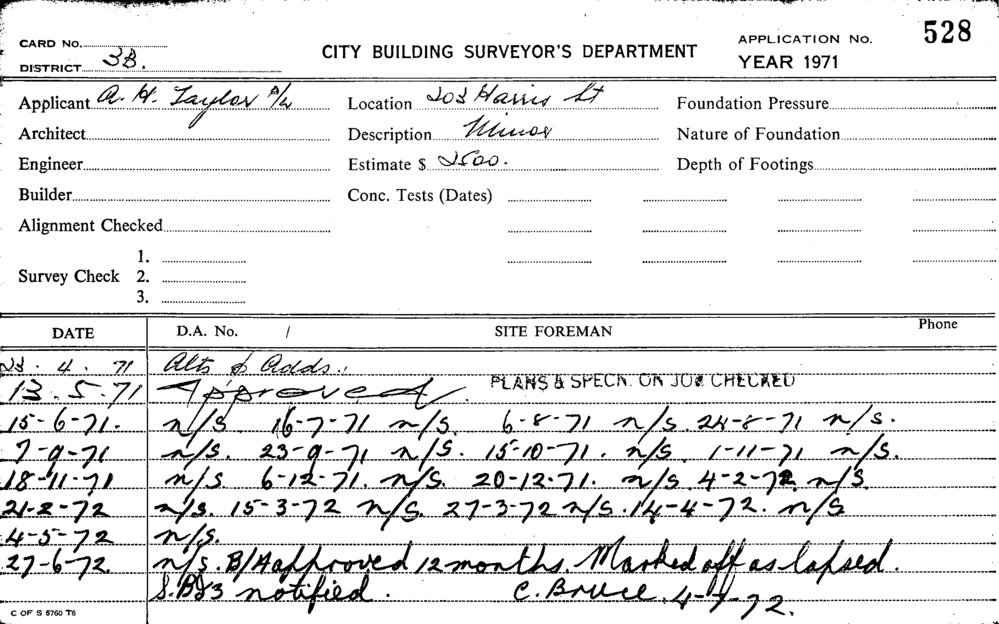 CARD NO.
DISTRICT 3B.
CITY BUILDING SURVEYOR'S DEPARTMENT
APPLICATION No. 528
YEAR 1971
Applicant A. H. Taylor P/L Location 203 Harris St Foundation Pressure
Architect Description Minor Nature of Foundation
Engineer Estimate $ 2500. Depth of Footings
Builder Conc. Tests (Dates)
Alignment Checked
1.
Survey Check 2.
3.
DATE D.A. No. / SITE FOREMAN Phone
4. 71 Alts & Adds.
13.5.71 Approved PLANS & SPECN. ON JOB CHECKED
15-6-71. n/s. 16-7-71 n/s. 6-8-71 n/s. 24-8-71 n/s.
7-9-71 n/s. 23-9-71 n/s. 15-10-71. n/s. 1-11-71 n/s.
18-11-71 n/s. 6-12-71. n/s. 20-12-71. n/s 4-2-72. n/s
21-2-72 n/s. 15-3-72 n/s. 27-3-72 n/s. 14-4-72. n/s
4-5-72 n/s.
27-6-72 n/s. B/A approved 12 months. Marked off as lapsed.
notified. C. Bruce. 4-7-72.
C OF S 5760 T6